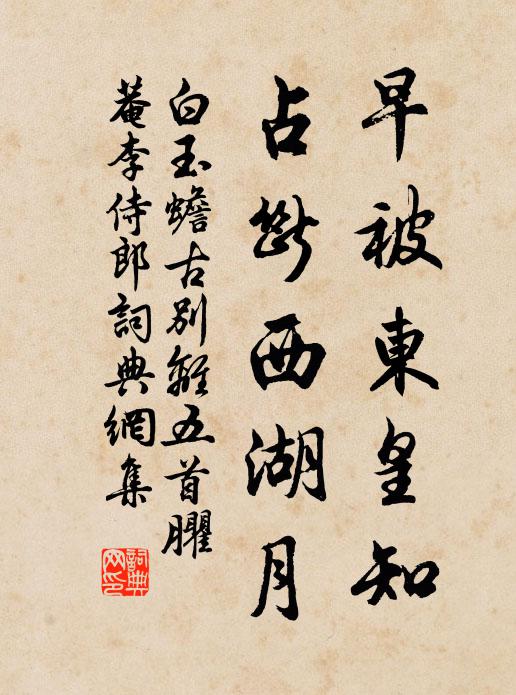 早被東皇知
占斷西湖月
白玉蟾古別離五首臞
菴李侍郎詞典網集
詞典網印